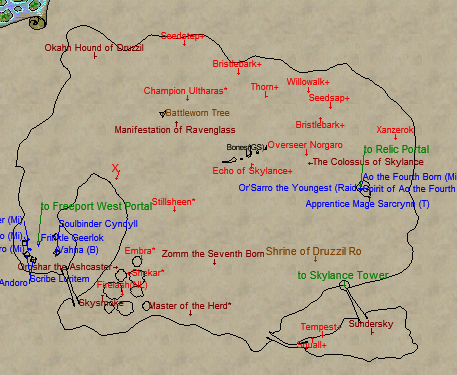 Seedstep+
Okahn Hound of Druzzil
Bristlebark+
Willowalk+
Thorn+
Champion Ultharas*
Seedsap+
Battleworn Tree
Bristlebark+
Manifestation of Ravenglass
Xanzerok
Bones(GS)
Overseer Norgaro
to Relic Portal
The Colossus of Skylance
X
Echo of Skylance+
Ao the Fourth Born (Mi
Or'Sarro the Youngest (Raid)
Spirit of Ao the Fourth
Stillsheen*
Apprentice Mage Sarcrynn (T)
to Freeport West Portal
er (Mi)
Soulbinder Cyndyll
o (Mi)
Frinkle Geerlok
ro (Mi)
A'ahna (B)
Embra*
Zomm the Seventh Born
Shrine of Druzzil Ro
Shekar*
to Skylance Tower
Scribe Luritem
Andoro
Skysmoke
Master of the Herd*
Tempest+
Sundersky